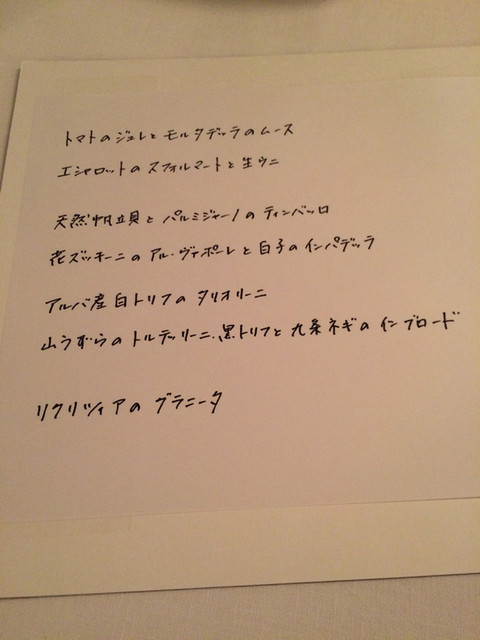 トマトのジュレとモルタデッラのムース
エシャロットのスフォルマートと生ウニ
天然帆立貝とパルミジャーノのティンバッロ
花ズッキーニのアル・ヴァポーレと白子のインパデッラ
アルバ産白トリフのタリオリーニ
山うずらのトルテッリーニ、黒トリフと九条ネギのインブロード
リクリツィアのグラニータ